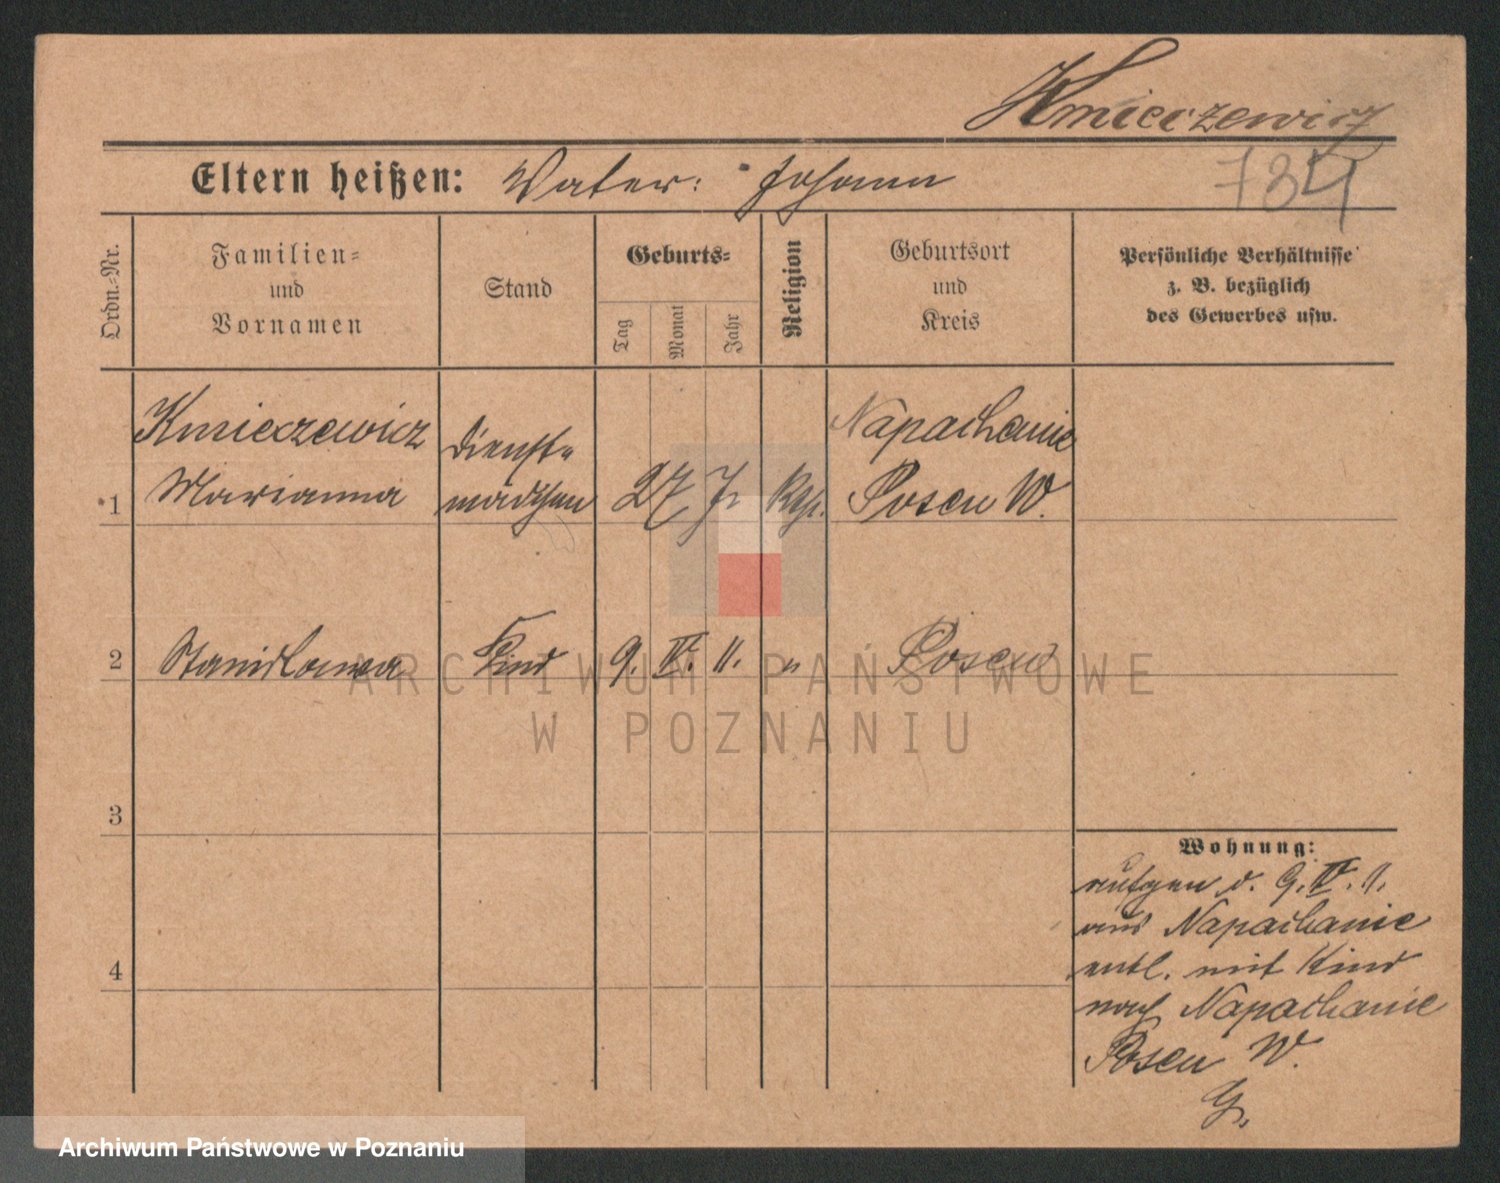 Kmieczewicz
Eltern heißen: Vater: Johann
734
Ordn.-Nr.
Familien-
und
Vornamen
Stand
Geburts-
Tag
Monat
Jahr
Religion
Geburtsort
und
Kreis
Persönliche Verhältnisse
z. B. bezüglich
des Gewerbes usw.
1
Kmieczewicz
Marianna
Dienst-
mädchen
27 J.
Kth.
Napachanie
Posen W.
2
Stanislawa
Kind
9. IV. 11.
"
Posen
3
4
Wohnung:
d. 9. IV. 11.
aus Napachanie
entl. mit Kind
nach Napachanie
Posen W.
ARCHIWUM PAŃSTWOWE
W POZNANIU
Archiwum Państwowe w Poznaniu